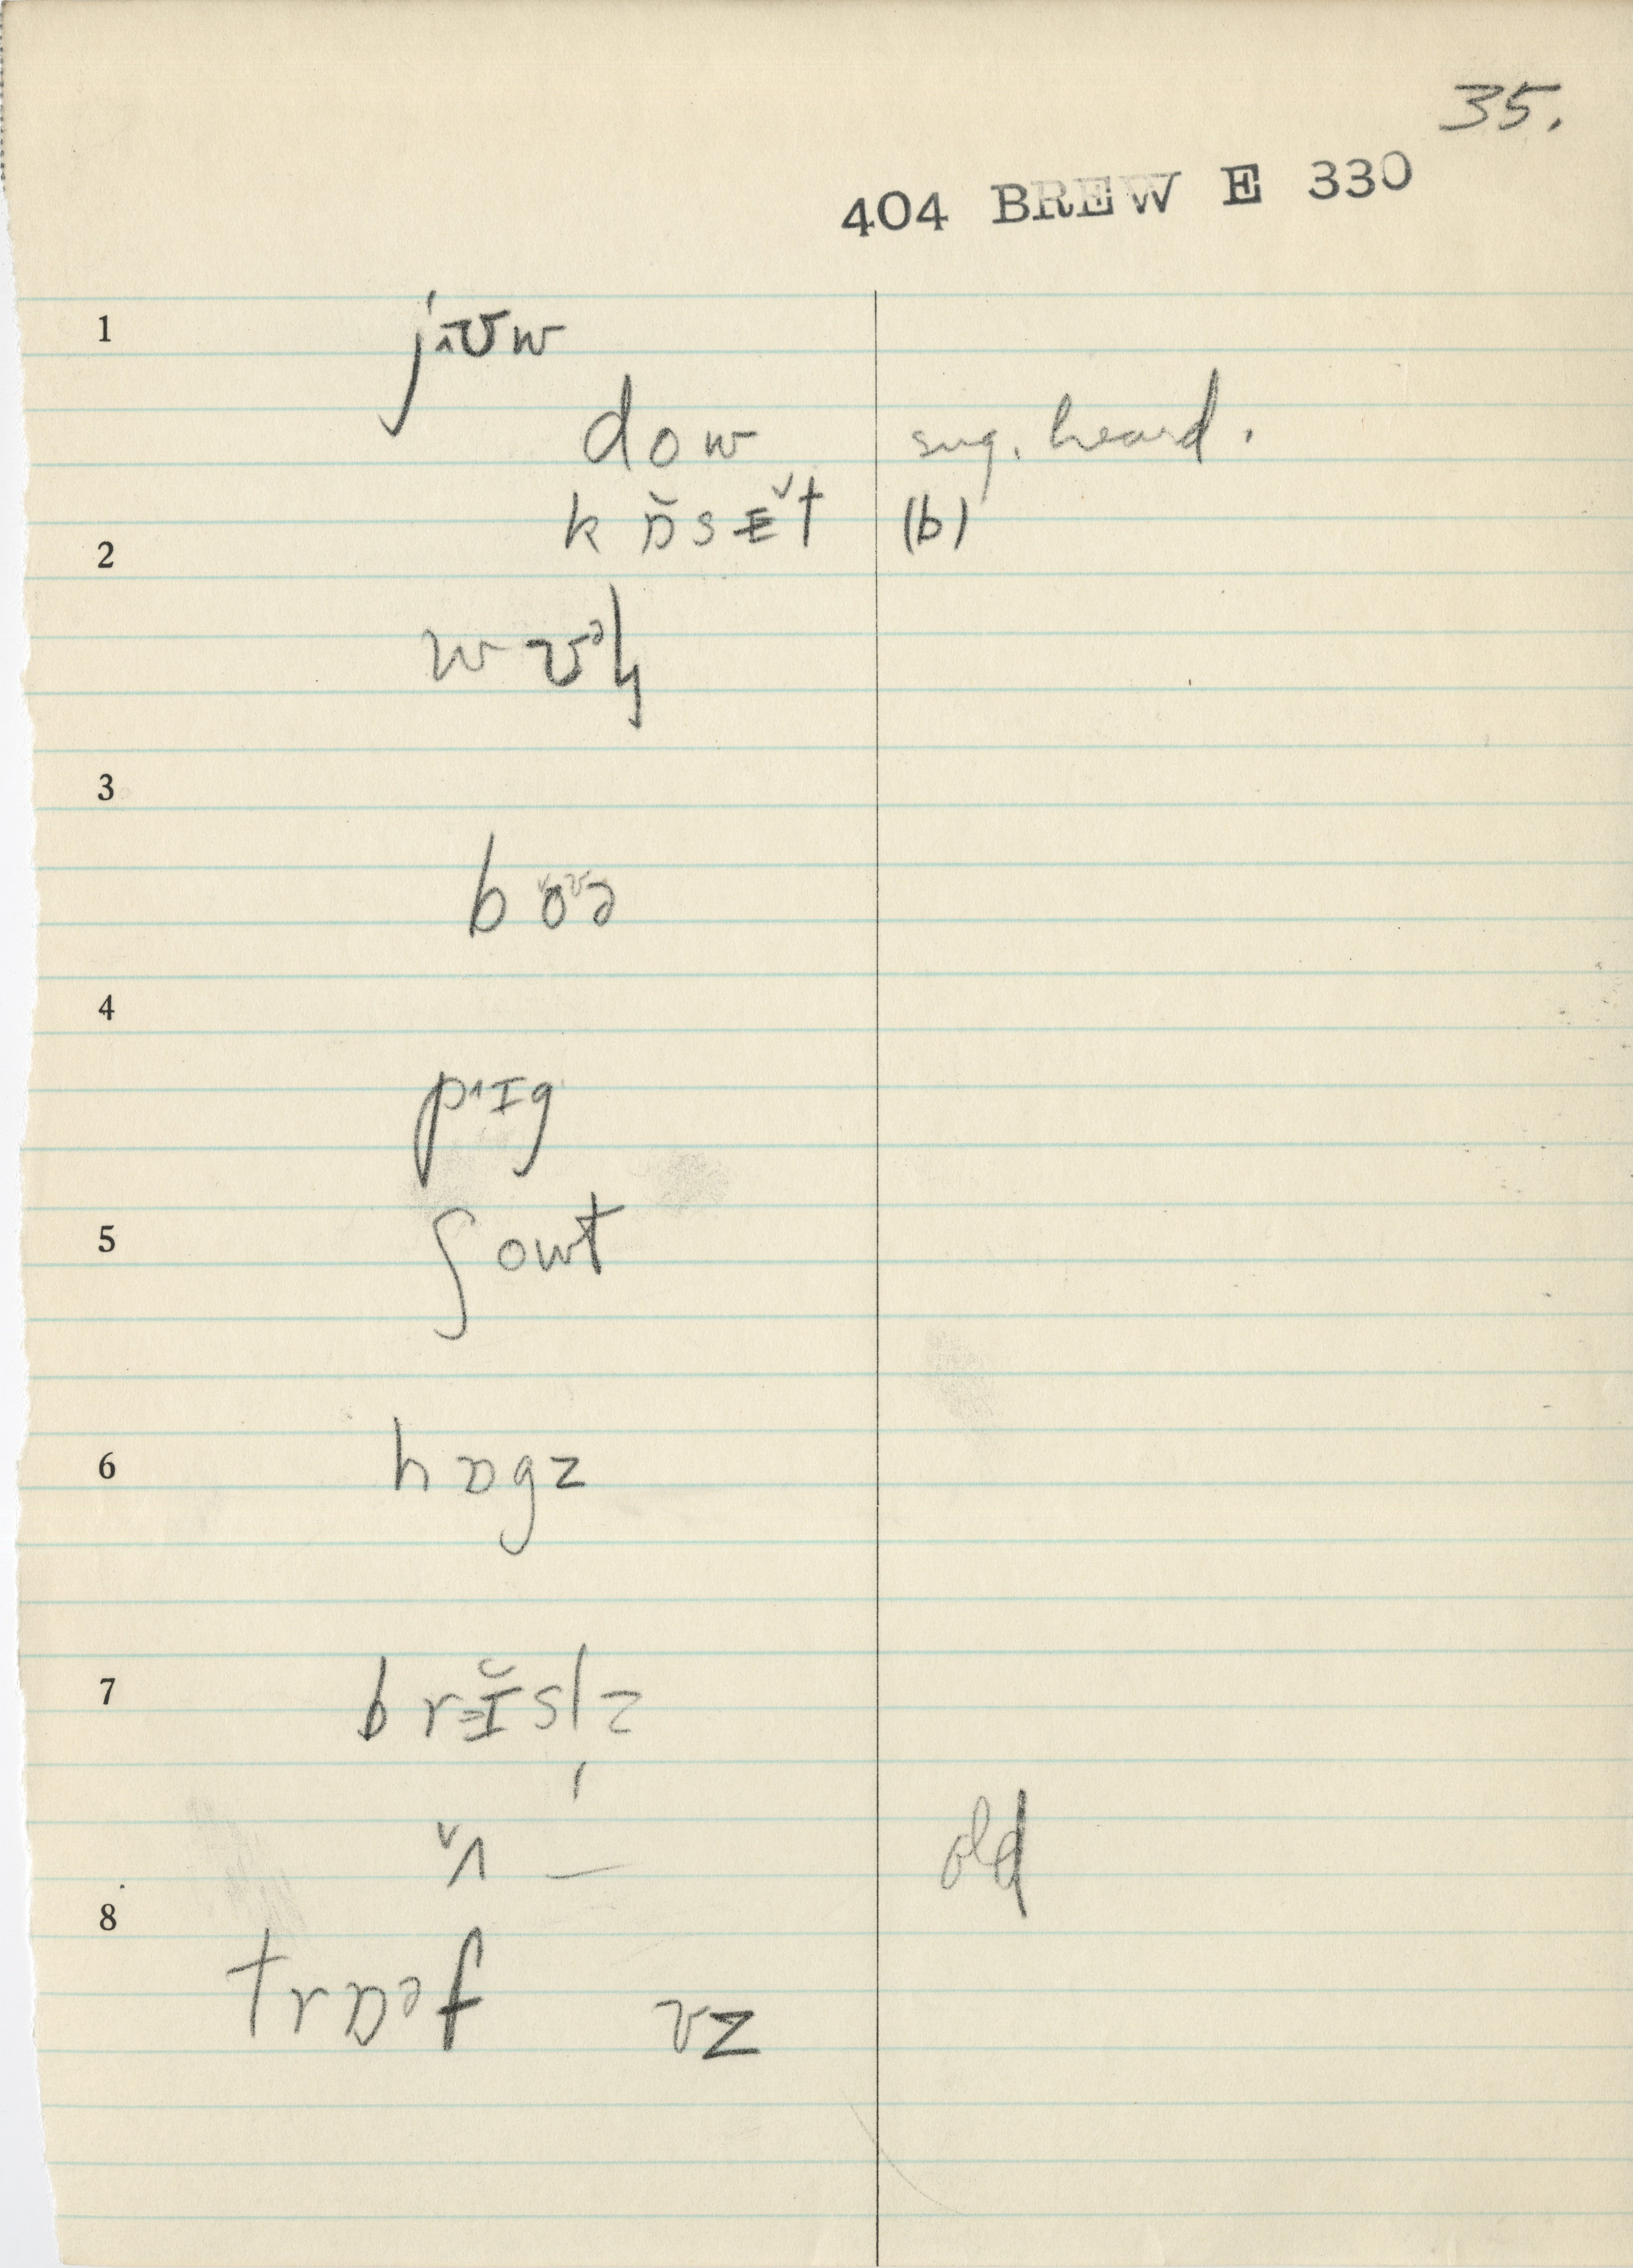 35.
404 BREW E 330
1 j˰ʊw
dow sug. heard.
k ɒ̆sɛ̆t (b)
2
w ʊᵊɫ
3
b ŏʊə
4
p˄ɪg
5 ʃowt
6 hɒgz
7 brɪ̆sl̩z
ˇʌ — old
8
trɒᵊf vz